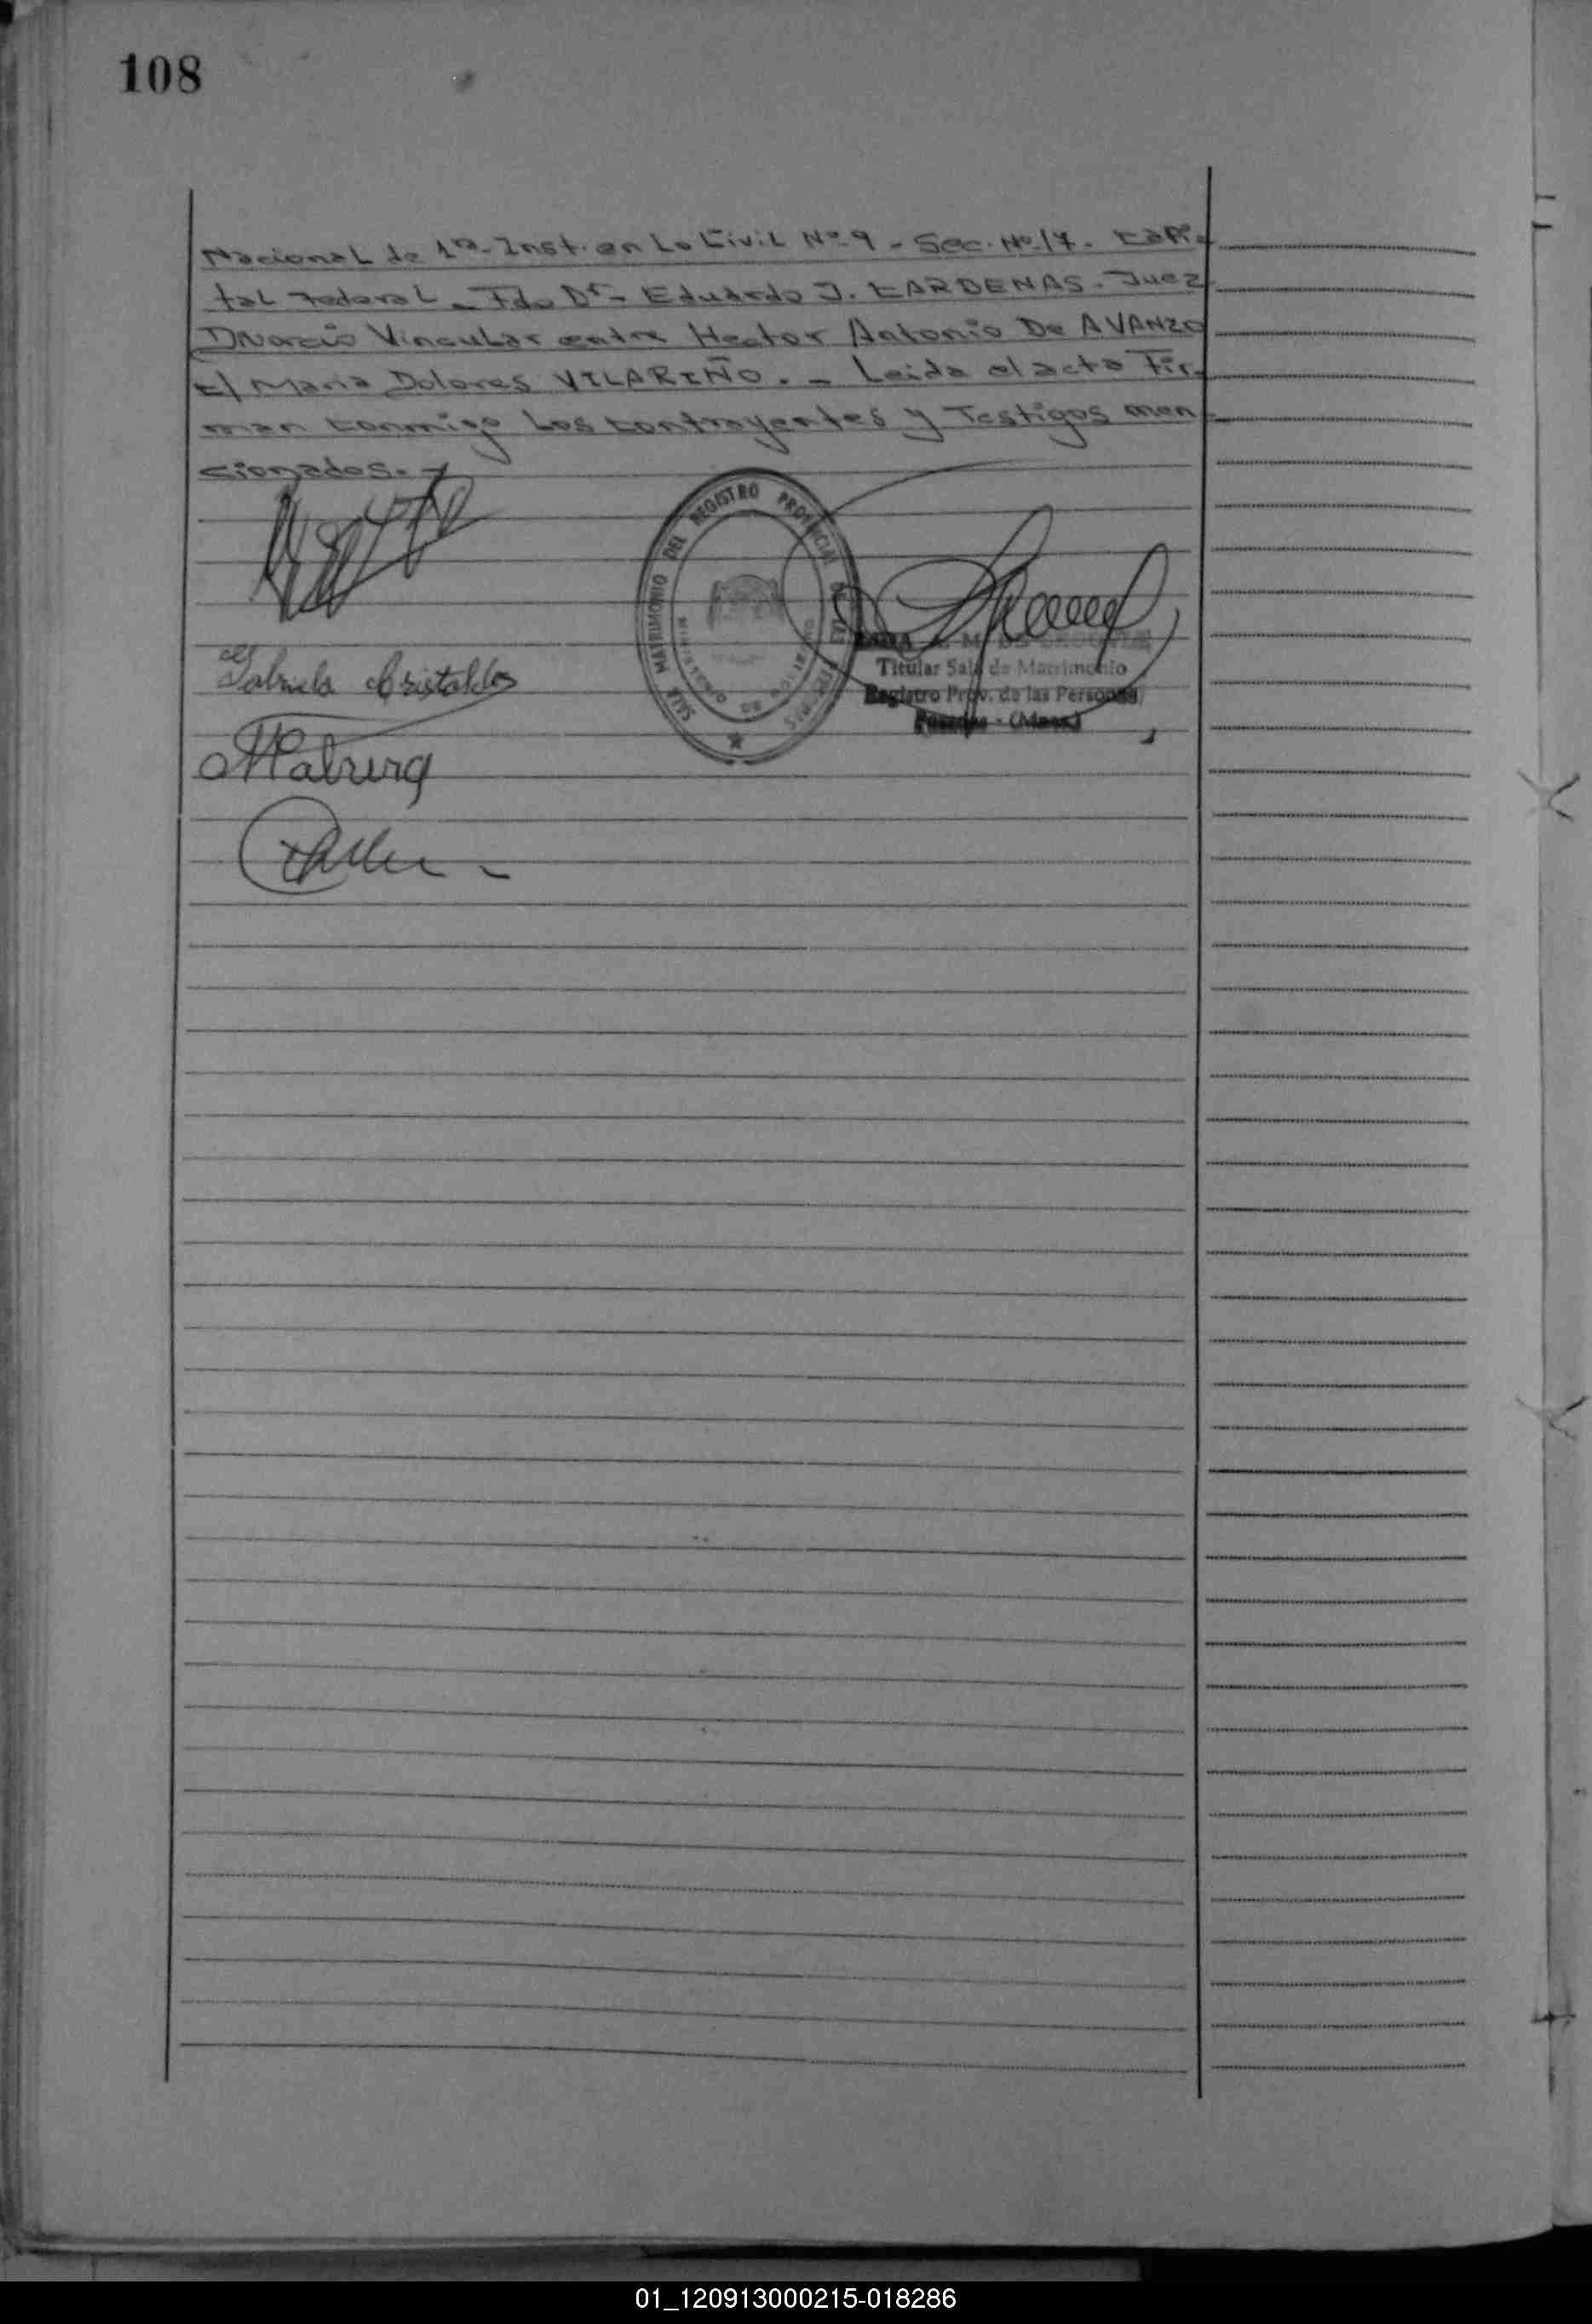 108
Nacional de 1ra. Inst. en Lo Civil Nº 9 - Sec. Nº 17. Capi-
tal Federal - Fdo Dr. - Eduardo J. CARDENAS - Juez
Divorcio Vincular entre Hector Antonio De AVANZO
c/ Maria Dolores VILARIÑO. - Leida el acta Fir-
man conmigo Los contrayentes y Testigos men-
cionados. -
SALA MATRIMONIO DEL REGISTRO PROVINCIAL DE LAS PERSONAS
Gabriela Cristaldo
Titular Sala de Matrimonio
Registro Prov. de las Personas
Posadas - (Mnes.)
01_120913000215-018286